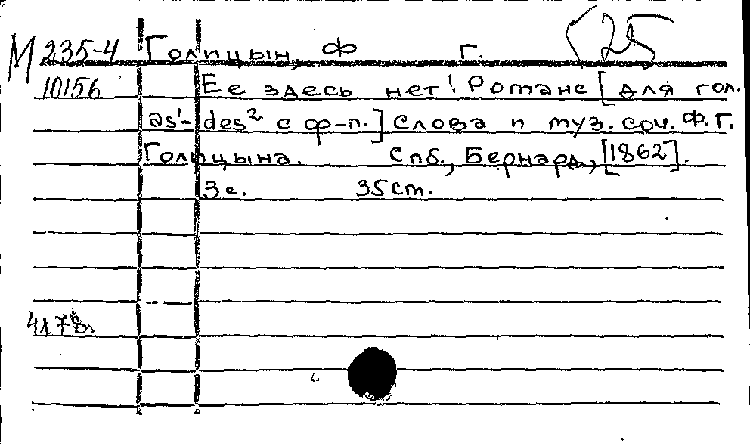 М 235-4 Голицын, Ф Г. 25
10156 Ее здесь нет! Романс [для гол.
as¹-des² с ф-п.] Слова и муз. соч. Ф.Г.
Голицына. Спб., Бернард, [1862].
3 с. 35 ст.